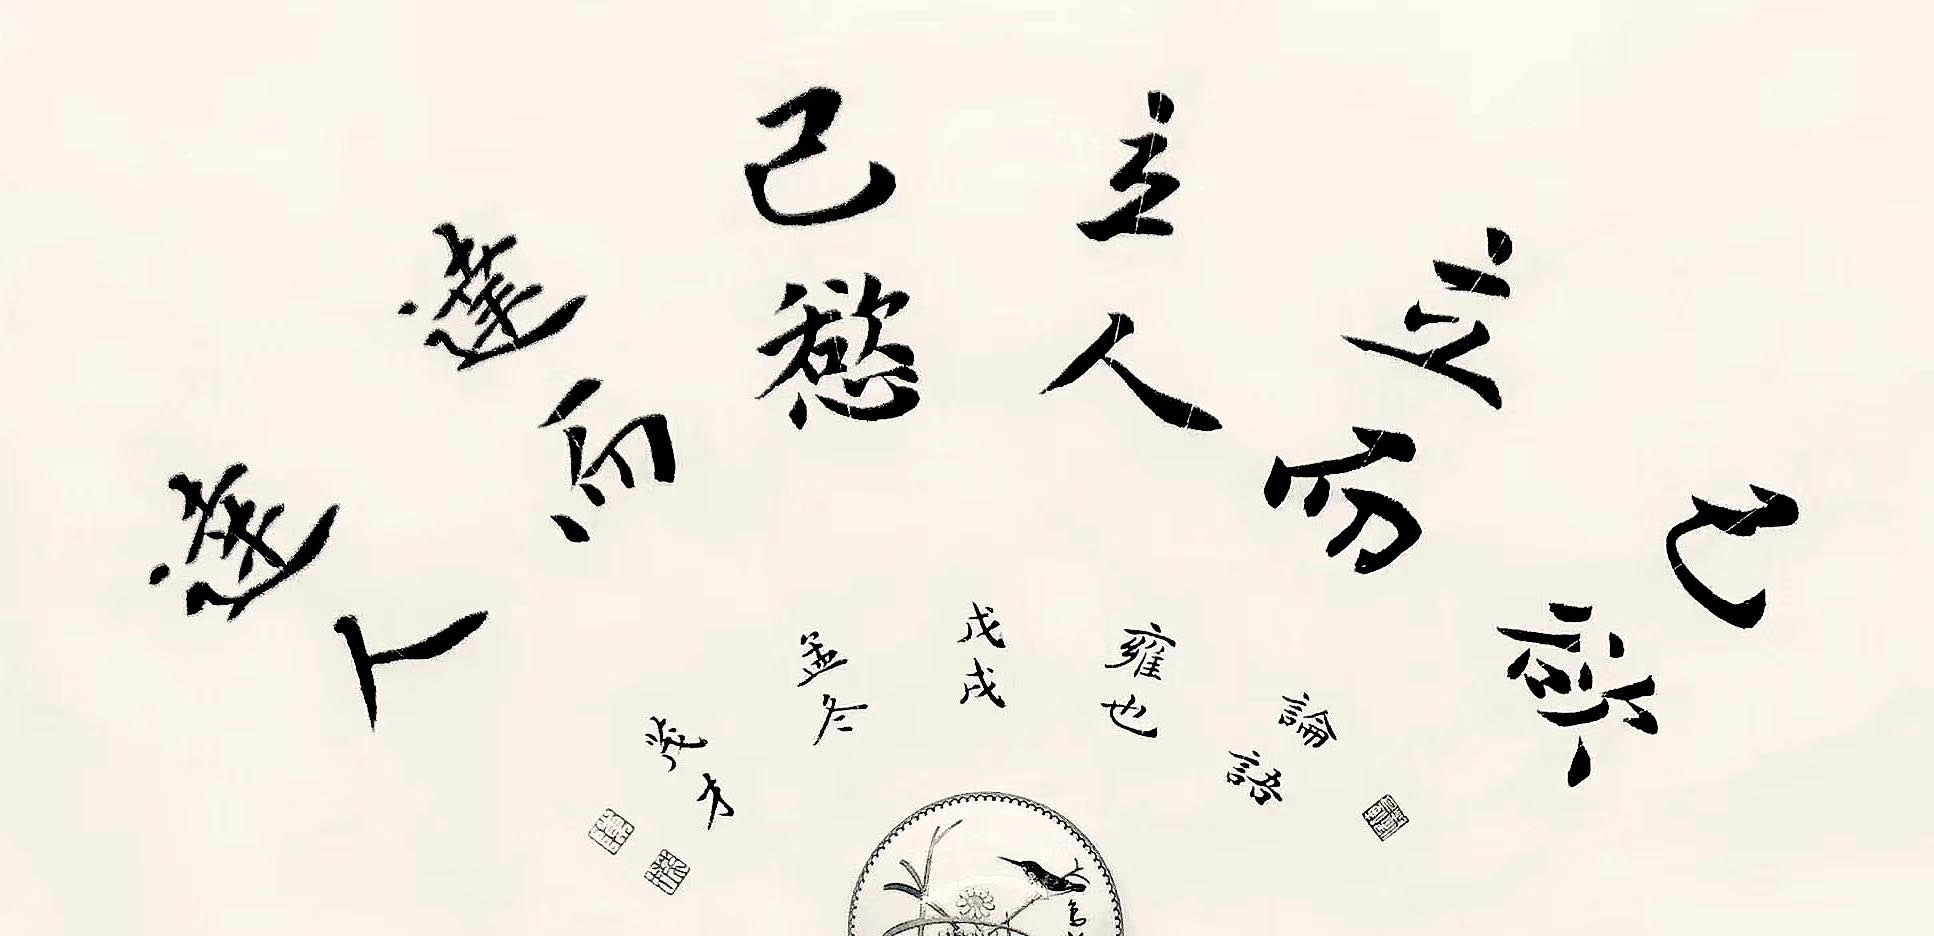 己欲
立而
立人
己慾
達而
達人
論語
雍也
戊戌
孟冬
茂才